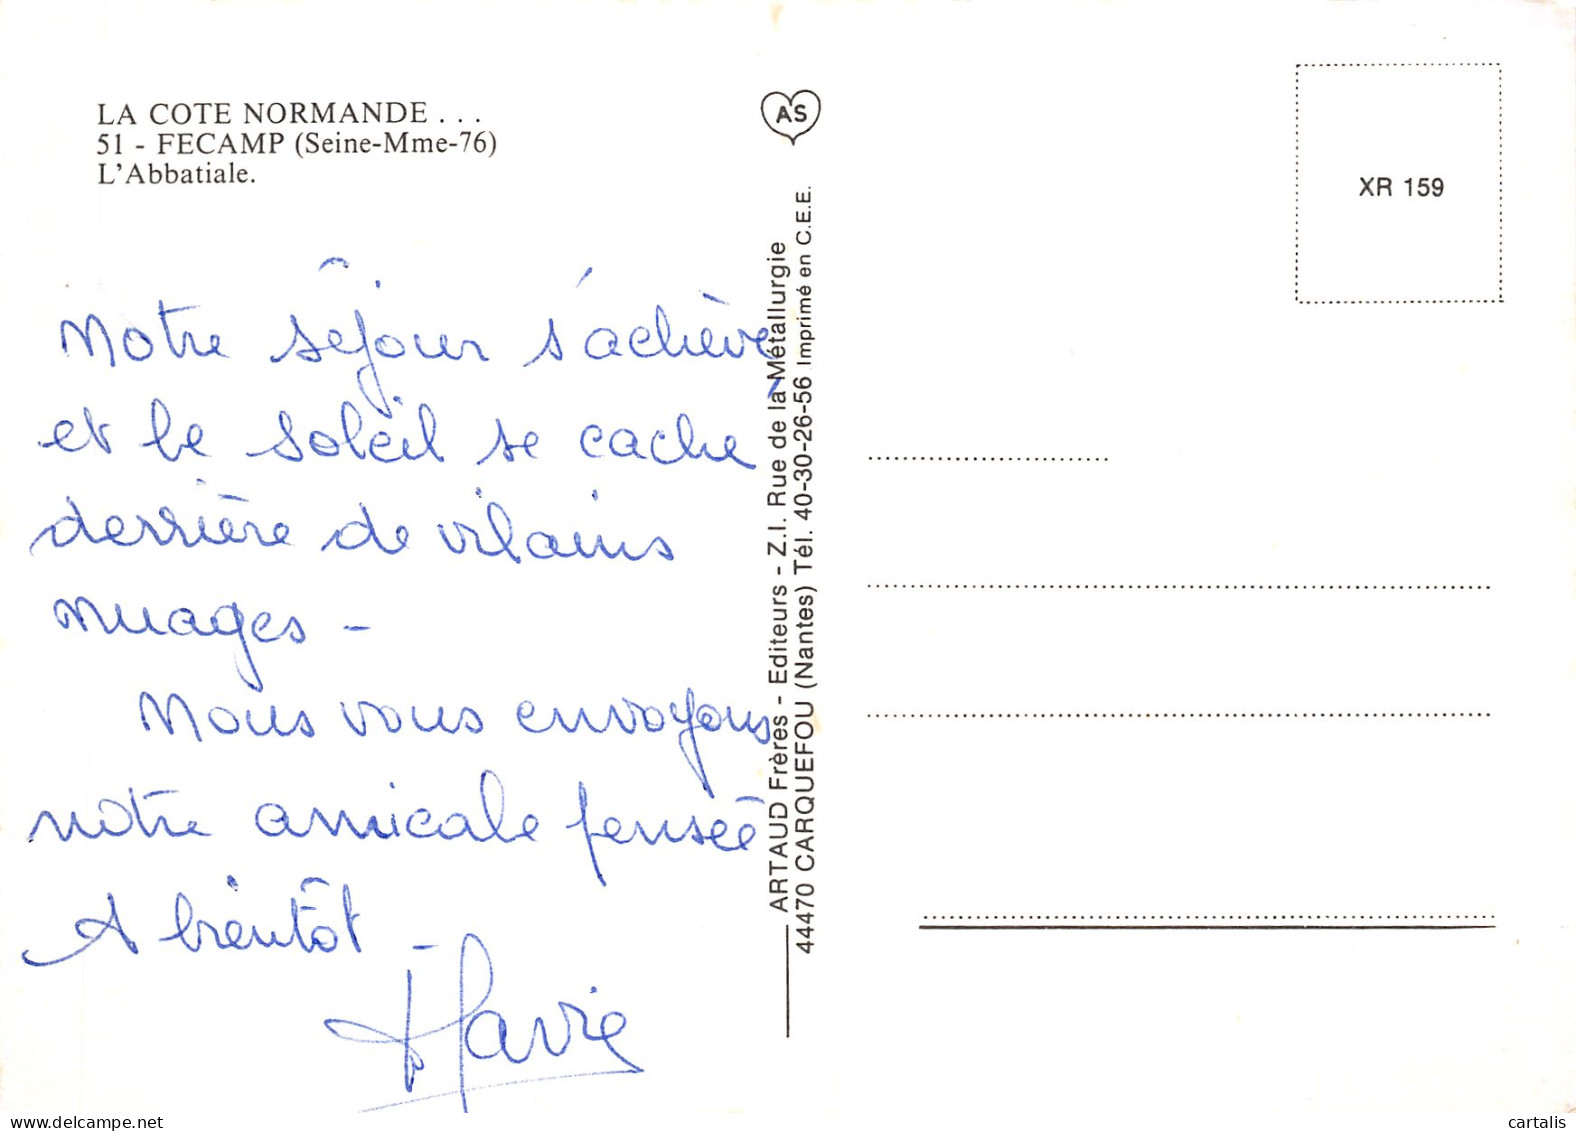 LA COTE NORMANDE . . .
51 - FECAMP (Seine-Mme-76)
L'Abbatiale.
Notre séjour s'achève
et le soleil se cache
derrière de vilains
nuages -
Nous vous envoyons
notre amicale pensée
A bientôt -
AS
ARTAUD Frères - Editeurs - Z.I. Rue de la Métallurgie
44470 CARQUEFOU (Nantes) Tél. 40-30-26-56 Imprimé en C.E.E.
XR 159
delcampe.net
cartalis